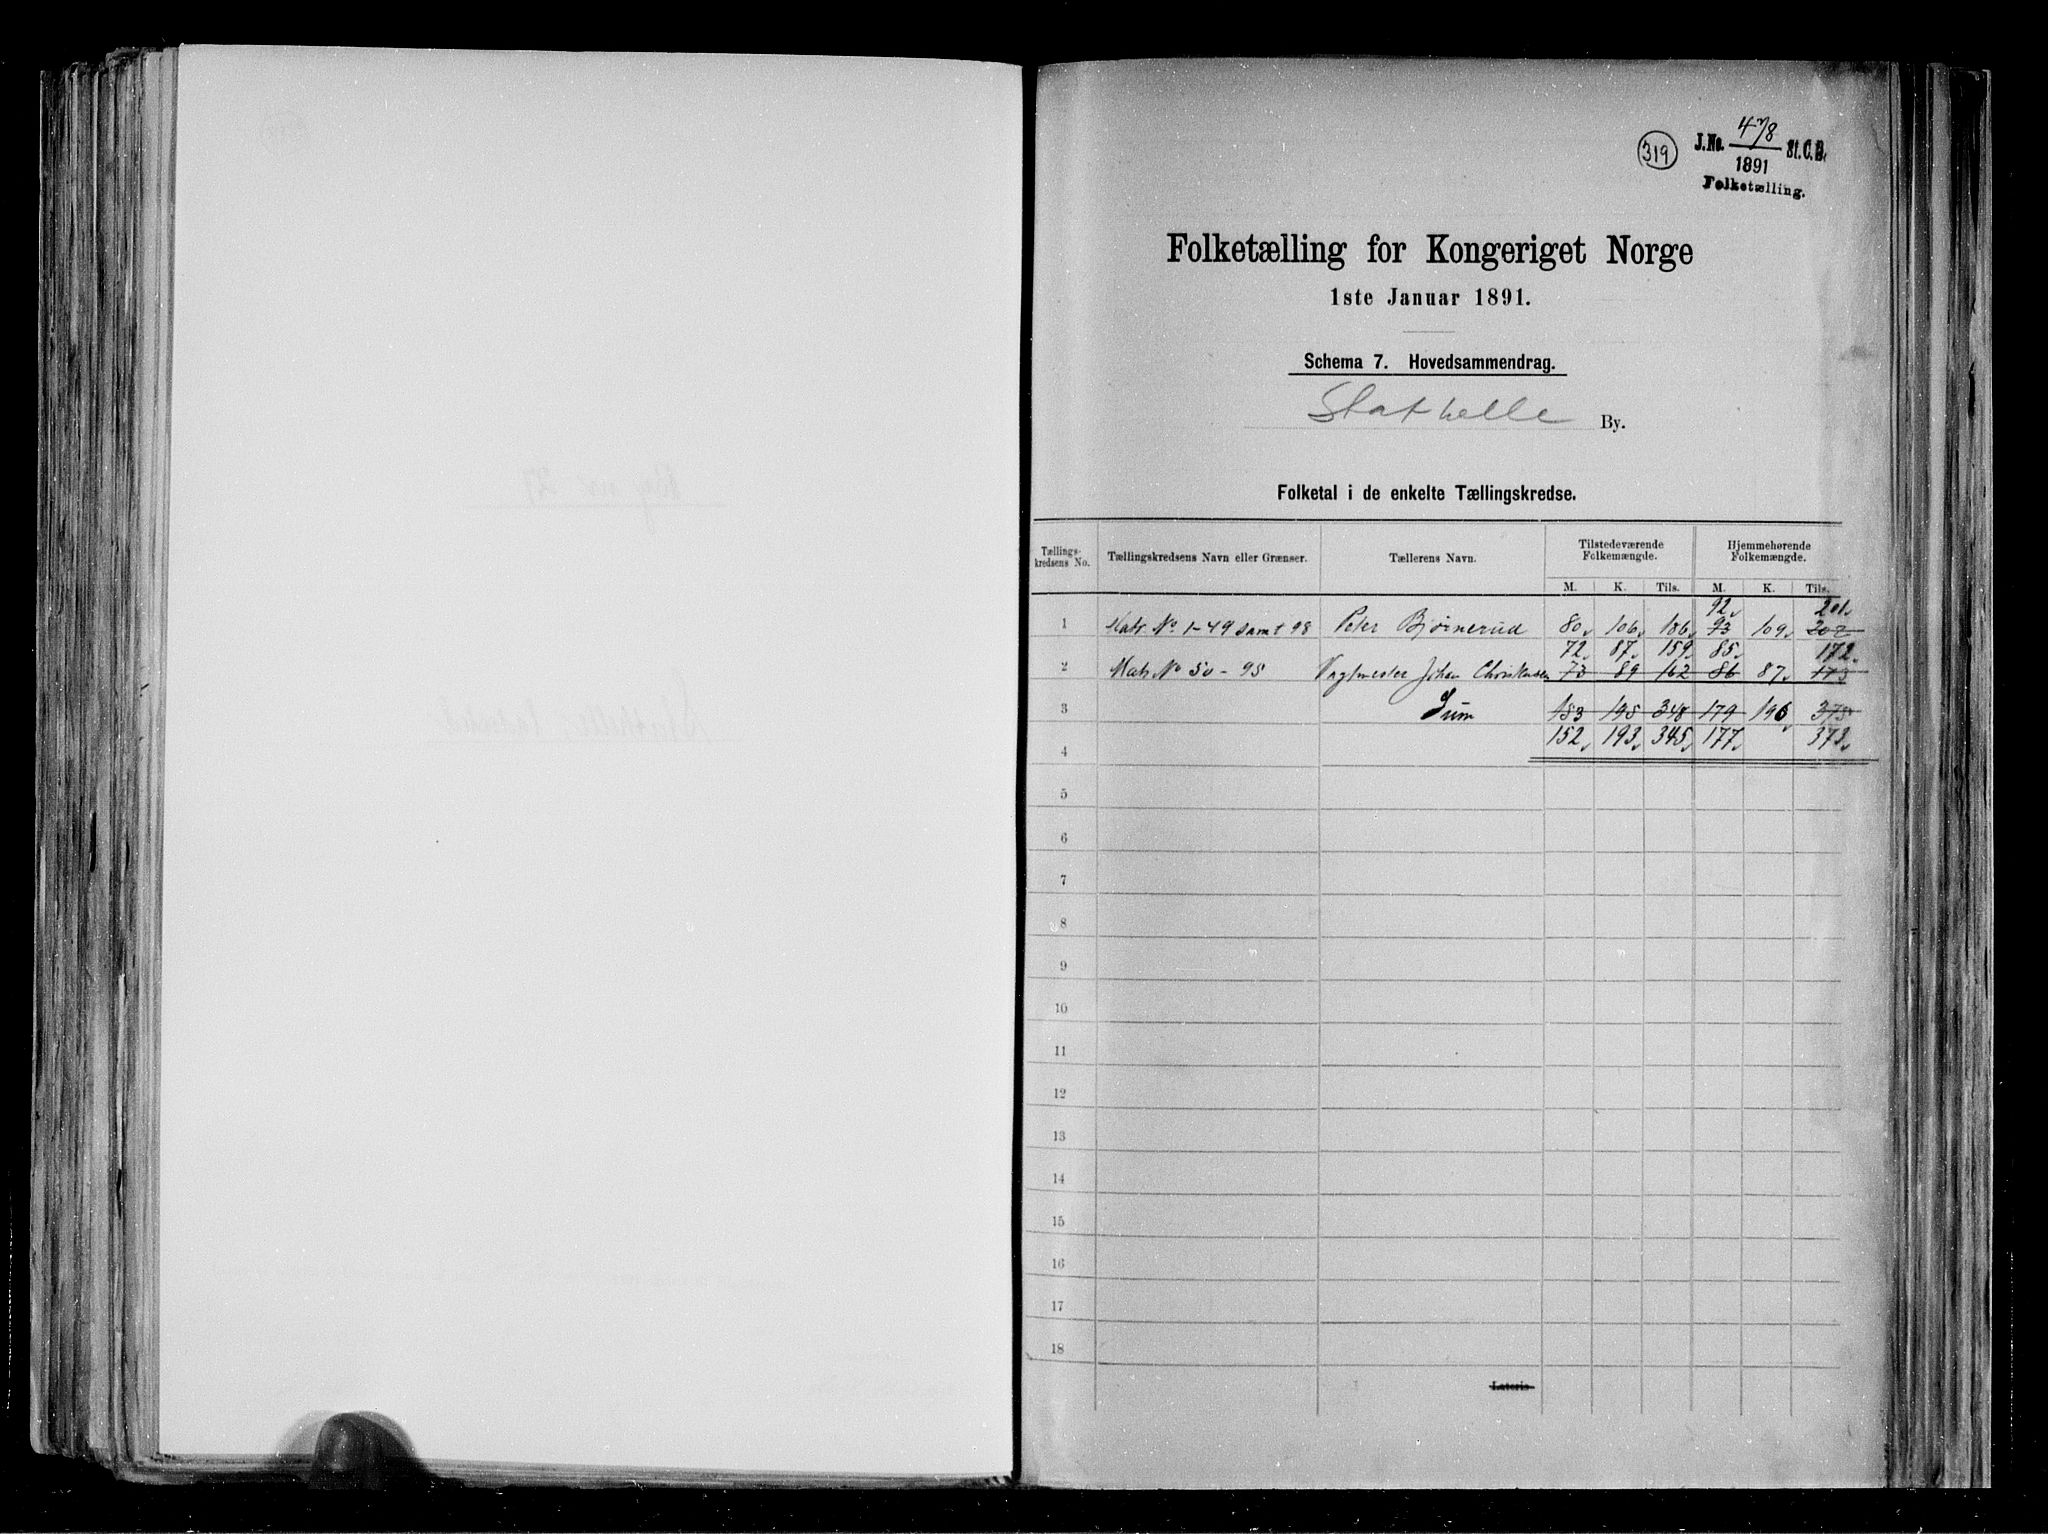 319
J.No. 478 St.C.B.
1891
Folketælling.
Folketælling for Kongeriget Norge
1ste Januar 1891.
Schema 7. Hovedsammendrag.
Stathelle By.
Folketal i de enkelte Tællingskredse.
Tællingskredsens No. Tællingskredsens Navn eller Grænser. Tællerens Navn. Tilstedeværende Folkemængde. Hjemmehørende Folkemængde.
M. K. Tils. M. K. Tils.
92 201
1 Matr No 1-49 samt 98 Peter Bjørnerud 80 106 186 93 109 202
72 87 159 85 172
2 Matr No 50-95 Vagtmester Johan Christensen 73 89 162 86 87 173
3 Sum 153 195 348 179 196 375
152 193 345 177 373
4
5
6
7
8
9
10
11
12
13
14
15
16
17
18
Lateris